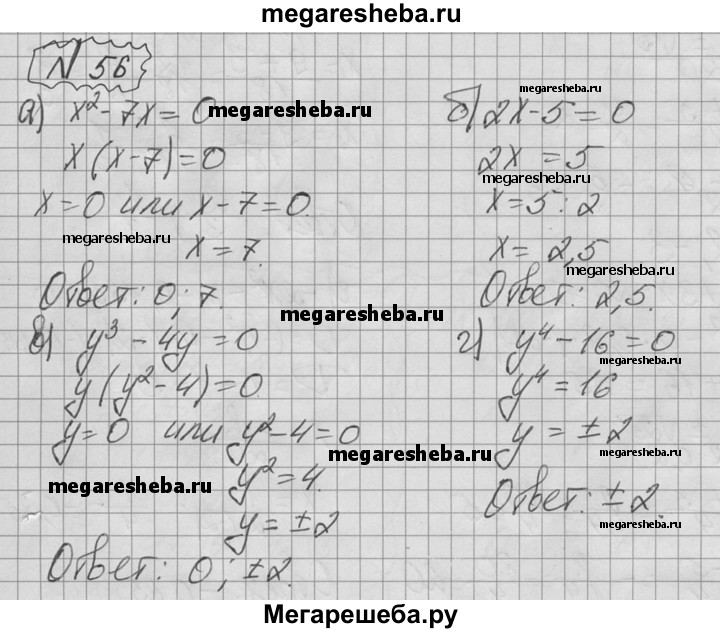 megaresheba.ru
N 56
а) x² - 7x = 0 megaresheba.ru
x(x-7)=0
x=0 или x-7=0
megaresheba.ru x=7.
Ответ: 0; 7.
megaresheba.ru
б) 2x-5=0
2x = 5
megaresheba.ru
x=5:2
x= 2,5
megaresheba.ru
Ответ: 2,5.
megaresheba.ru
в) y³ - 4y = 0
y(y²-4)=0
y=0 или y²-4=0
megaresheba.ru
y²=4.
megaresheba.ru
y=±2
Ответ: 0; ±2.
г) y⁴-16=0
megaresheba.ru
y⁴=16
y = ±2
megaresheba.ru
Ответ: ±2.
megaresheba.ru
Мегарешеба.ру